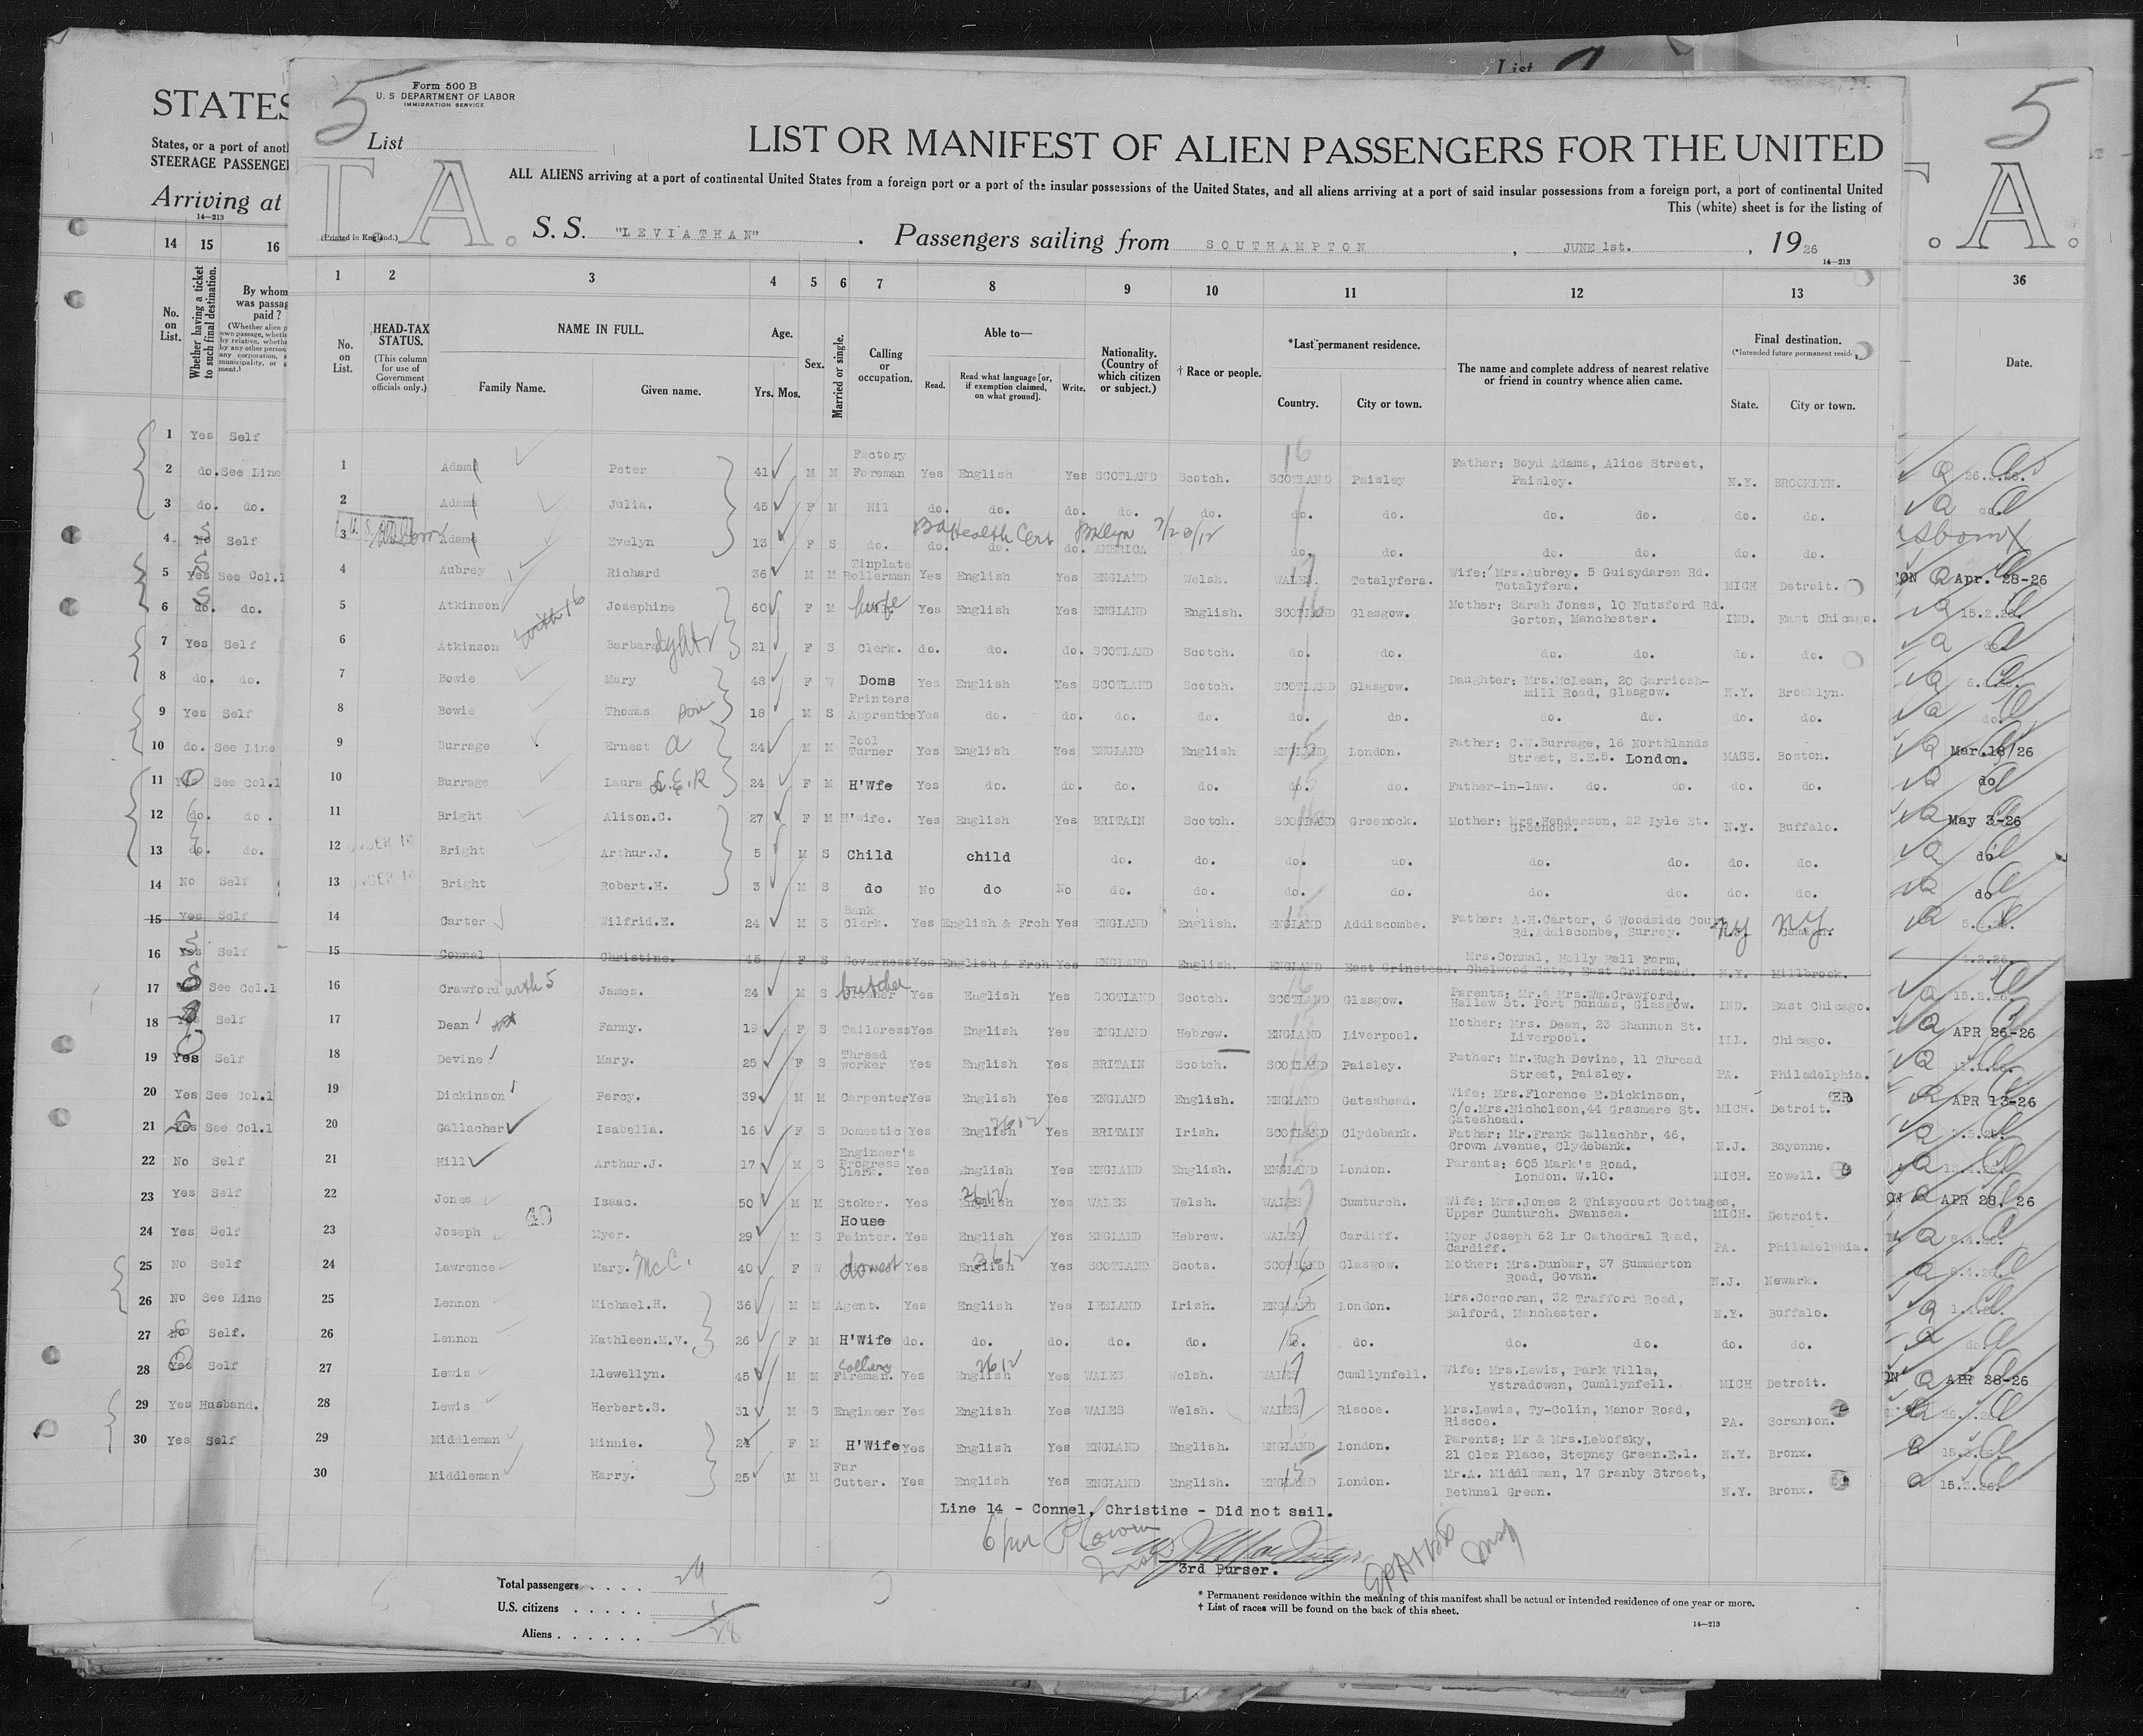 List
STATES
States, or a port of anot
STEERAGE PASSENGE
Arriving at
14—213
5
Form 500 B
U. S DEPARTMENT OF LABOR
IMMIGRATION SERVICE
List
5
LIST OR MANIFEST OF ALIEN PASSENGERS FOR THE UNITED
ALL ALIENS arriving at a port of continental United States from a foreign port or a port of the insular possessions of the United States, and all aliens arriving at a port of said insular possessions from a foreign port, a port of continental United
This (white) sheet is for the listing of
T A.
(Printed in England.)
S. S. "LEVIATHAN" . Passengers sailing from SOUTHAMPTON , JUNE 1st. , 1926
14—213
. A.
14 15 16
No. on List.
Whether having a ticket to such final destination.
By whom was passag paid?
1 2 3 4 5 6 7 8 9 10 11 12 13
36
No. on List.
HEAD-TAX STATUS.
(This column for use of Government officials only.)
NAME IN FULL.
Family Name. Given name.
Age.
Yrs. Mos.
Sex.
Married or single.
Calling or occupation.
Able to—
Read. Read what language [or, if exemption claimed, on what ground]. Write.
Nationality. (Country of which citizen or subject.)
† Race or people.
*Last permanent residence.
Country. City or town.
The name and complete address of nearest relative or friend in country whence alien came.
Final destination.
(*Intended future permanent resid.
State. City or town.
Date.
1 Yes Self
2 do. See Line
3 do. do.
4 No Self
5 Yes See Col.1
6 do. do.
7 Yes Self
8 do. do.
9 Yes Self
10 do. See Line
11 Yes See Col.1
12 do. do.
13 do. do.
14 No Self
15 Yes Self
16 Yes Self
17 See Col.1
18 Yes Self
19 Yes Self
20 Yes See Col.1
21 Yes See Col.1
22 No Self
23 Yes Self
24 Yes Self
25 No Self
26 No See Line
27 No Self.
28 Yes Self
29 Yes Husband.
30 Yes Self
1 Adams Peter 41 M M Factory Foreman Yes English Yes SCOTLAND Scotch. SCOTLAND Paisley Father: Boyd Adams, Alice Street, Paisley. N.Y. BROOKLYN.
2 Adams Julia. 45 F M Nil do. do. do. do. do. do. do. do. do. do. do.
3 Adams Evelyn 13 F S do. do. do. do. AMERICA do. do. do. do. do. do.
Health Cert Bklyn
4 Aubrey Richard 36 M M Tinplate Rollerman Yes English Yes ENGLAND Welsh. WALES. Tetalyfera. Wife: Mrs.Aubrey. 5 Guisydaren Rd. Tetalyfera. MICH Detroit. Apr. 28-26
5 Atkinson Josephine 60 F M Yes English Yes ENGLAND English. SCOTLAND Glasgow. Mother: Sarah Jones, 10 Nutsford Rd. Gorton, Manchester. IND. East Chicago. 15.2.26.
with 16
6 Atkinson Barbara 21 F S Clerk. do. do. do. SCOTLAND Scotch. do. do. do. do. do. do. do.
7 Bowie Mary 48 F W Doms Yes English Yes SCOTLAND Scotch. SCOTLAND Glasgow. Daughter: Mrs.McLean, 20 Garrioch-mill Road, Glasgow. N.Y. Brooklyn.
8 Bowie Thomas son 18 M S Printers Apprentice Yes do. do. do. do. do. do. do. do. do. do. do.
9 Burrage Ernest A 24 M M Tool Turner Yes English Yes ENGLAND English ENGLAND London. Father: C.W.Burrage, 16 Northlands Street, S.E.5. London. MASS. Boston. Mar.18/26
10 Burrage Laura S.E.R 24 F M H'Wfe Yes do. do. do. do. do. do. Father-in-law. do. do. do. do. do
11 Bright Alison.C. 27 F M H'wife. Yes English Yes BRITAIN Scotch. SCOTLAND Greenock. Mother: Mrs.Henderson, 22 Lyle St. Greenock. N.Y. Buffalo. May 3-26
12 UNDER 16 Bright Arthur.J. 5 M S Child child do. do. do. do. do. do. do. do. do
13 UNDER 16 Bright Robert.H. 3 M S do No do No do. do. do. do. do. do. do. do. do
14 Carter Wilfrid.E. 24 M S Bank Clerk. Yes English & Frch Yes ENGLAND English. ENGLAND Addiscombe. Father: A.H.Carter, 6 Woodside Cour Rd.Addiscombe, Surrey. NY N.Y.
15 Connal Christine. 45 F S Governess Yes English & Frch Yes ENGLAND English. ENGLAND East Grinstead. Mrs.Connal, Holly Hall Farm, Chelwood Gate, East Grinstead. N.Y. Millbrook. 4.2.26.
16 Crawford with 5 James. 24 M S butcher Yes English Yes SCOTLAND Scotch. SCOTLAND Glasgow. Parents: Mr.& Mrs.Wm.Crawford, Hallaw St. Port Dundas, Glasgow. IND. East Chicago. 15.2.26.
17 Dean Fanny. 19 F S Tailoress Yes English Yes ENGLAND Hebrew. ENGLAND Liverpool. Mother: Mrs. Dean, 23 Shannon St. Liverpool. ILL. Chicago. APR 26-26
18 Devine Mary. 25 F S Thread worker Yes English Yes BRITAIN Scotch. SCOTLAND Paisley. Father: Mr.Hugh Devine, 11 Thread Street, Paisley. PA. Philadelphia.
19 Dickinson Percy. 39 M M Carpenter Yes English Yes ENGLAND English. ENGLAND Gateshead. Wife: Mrs.Florence E.Dickinson, C/o.Mrs.Nicholson,44 Grasmere St. Gateshead. MICH. Detroit. APR 13-26
20 Gallacher Isabella. 16 F S Domestic Yes English Yes BRITAIN Irish. SCOTLAND Clydebank. Father: Mr.Frank Gallacher, 46, Crown Avenue, Clydebank. N.J. Bayonne.
21 Hill Arthur.J. 17 M S Engineer's Progress Clerk. Yes English Yes ENGLAND English. ENGLAND London. Parents: 605 Mark's Road, London. W.10. MICH. Howell.
22 Jones Isaac. 50 M M Stoker. Yes English Yes WALES Welsh. WALES Cumturch. Wife: Mrs.Jones 2 Thisycourt Cottages, Upper Cumturch. Swansea. MICH. Detroit. APR 28, 26
23 Joseph Myer. 29 M S House Painter. Yes English Yes ENGLAND Hebrew. WALES Cardiff. Myer Joseph 62 Lr Cathedral Road, Cardiff. PA. Philadelphia. 8.4.26.
24 Lawrence Mary. McC. 40 F W domest Yes English Yes SCOTLAND Scots. SCOTLAND Glasgow. Mother: Mrs.Dunbar, 37 Summerton Road, Govan. N.J. Newark.
25 Lennon Michael.H. 36 M M Agent. Yes English Yes IRELAND Irish. ENGLAND London. Mrs.Corcoran, 32 Trafford Road, Salford, Manchester. N.Y. Buffalo.
26 Lennon Kathleen.M.V. 26 F M H'Wife do. do. do. do. do. do. do. do. do. do. do.
27 Lewis Llewellyn. 45 M M Colliery Fireman. Yes English Yes WALES Welsh. WALES Cumllynfell. Wife: Mrs.Lewis, Park Villa, Ystradowen, Cumllynfell. MICH Detroit. APR 28-26
28 Lewis Herbert.S. 31 M S Engineer Yes English Yes WALES Welsh. WALES Riscoe. Mrs.Lewis, Ty-Colin, Manor Road, Riscoe. PA. Scranton.
29 Middleman Minnie. 24 F M H'Wife Yes English Yes ENGLAND English. ENGLAND London. Parents: Mr & Mrs.Lebofsky, 21 Oloz Place, Stepney Green.E.1. N.Y. Bronx.
30 Middleman Harry. 25 M M Fur Cutter. Yes English Yes ENGLAND English. ENGLAND London. Mr.A. Middleman, 17 Granby Street, Bethnal Green. N.Y. Bronx. 15.3.26.
Line 14 - Connel, Christine - Did not sail.
3rd Purser.
Total passengers . . . . 29
U.S. citizens . . . . . 1
Aliens . . . . . . 28
* Permanent residence within the meaning of this manifest shall be actual or intended residence of one year or more.
† List of races will be found on the back of this sheet.
14—213